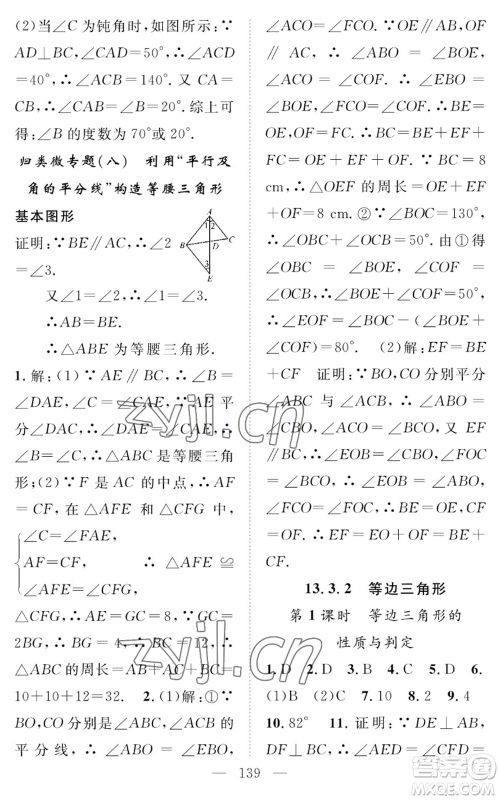 (2)当∠C 为钝角时,如图所示:∵
AD⊥BC,∠CAD=50°,∴∠ACD
=40°,∴∠ACB=140°. 又∵CA=
CB,∴∠CAB=∠B=20°. 综上可
得:∠B 的度数为70°或20°.
归类微专题(八) 利用“平行及
角的平分线”构造等腰三角形
基本图形
A
1 2
B D C
3
E
证明:∵BE∥AC,∴∠2
=∠3.
又∵∠1=∠2,∴∠1=∠3,
∴AB=BE.
∴△ABE 为等腰三角形.
1.解:(1)∵AE∥BC,∴∠B=
∠DAE,∠C=∠CAE. ∵AE 平
分∠DAC,∴∠DAE=∠CAE,
∴∠B=∠C,∴△ABC 是等腰三角
形;(2)∵F 是AC 的中点,∴AF
=CF,在△AFE 和△CFG 中,
∠C=∠FAE,
AF=CF, ∴△AFE≌
∠AFE=∠CFG,
△CFG,∴AE=GC=8. ∵GC=
2BG,∴BG=4,∴BC=12,∴
△ABC 的周长=AB+AC+BC=
10+10+12=32. 2.(1)解:①∵
BO,CO 分别是∠ABC,∠ACB 的
平分线,∴∠ABO=∠EBO,
∠ACO=∠FCO. ∵OE∥AB,OF∥
AC,∴∠ABO=∠BOE,∠ACO
=∠COF. ∴∠EBO=∠BOE,
∠FCO=∠COF. ∴BE=OE,CF
=OF. ∵BC=BE+EF+CF=
8 cm,∴△OEF 的周长=OE+OF
+EF=8 cm. ②∵∠BOC=130°,
∴∠OBC+∠OCB=50°. 由①得
∠OBC=∠BOE,∠OCB=∠COF,
∴∠BOE+∠COF=50°,∴
∠EOF=∠BOC-(∠BOE+
∠COF)=80°. (2)解:EF=BE+
CF 证明:∵BO,CO 分别平分
∠ABC 与∠ACB,∴∠ABO=
∠CBO,∠ACO=∠BCO. 又∵
EF∥BC,∴∠EOB=∠OBC,
∠FOC=∠OCB. ∴∠ABO=
∠EOB,∠ACO=∠FOC. ∴OE=
BE,OF=CF. ∴EF=EO+OF=BE+
CF.
13.3.2 等边三角形
第1课时 等边三角形的
性质与判定
1.D 2.D 3.B 4.C 5.D 6.
(1)B (2)C 7.10 8.2 9.4
10.82° 11.证明:∵DE⊥AB,
DF⊥AC,∴∠BED=∠CFD=
139
zyjl.cn
zyjl.cn
答案圈
MXQE.COM